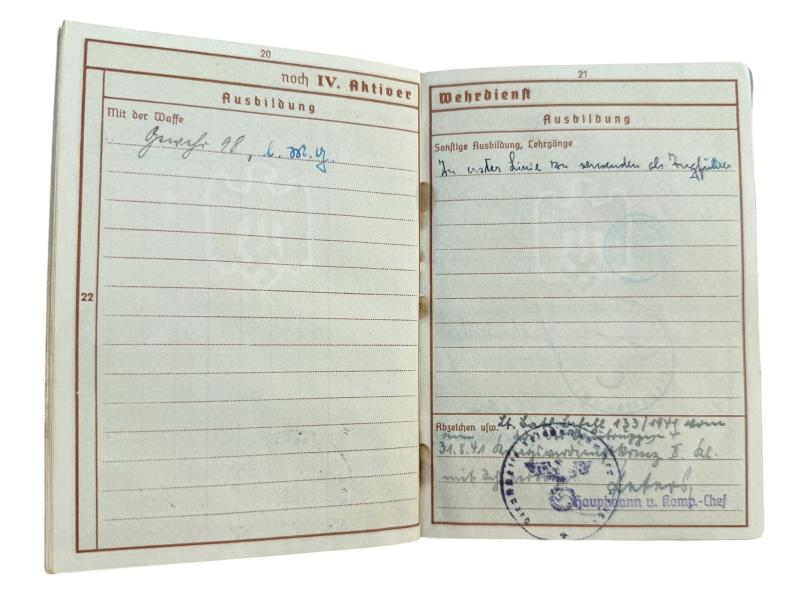 20
noch IV. Aktiver
Ausbildung
Mit der Waffe
Gewehr 98, l. M. G.
22
21
Wehrdienst
Ausbildung
Sonstige Ausbildung, Lehrgänge
In erster Linie zu verwenden als Zugführer
Abzeichen usw. Lt. 133/1941 vom
31.8.41 Kriegsverdienstkreuz II. Kl.
mit
Hauptmann u. Komp.-Chef